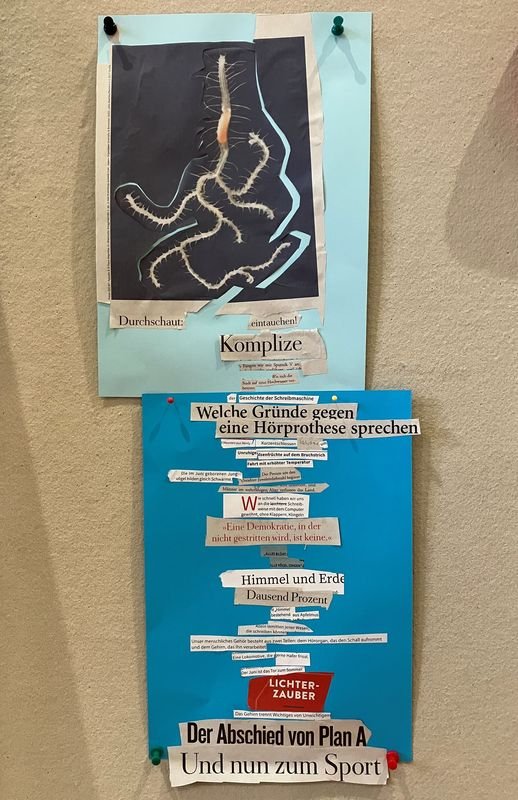 Durchschaut:
eintauchen!
Komplize
der Geschichte der Schreibmaschine
Welche Gründe gegen
eine Hörprothese sprechen
Kurzentschlossen
Unruhige
auf dem Bruchstrich
Fahrt mit erhöhter Temperatur
Die im Juni geborenen Jung-
vögel bilden gleich Schwärme.
Wie schnell haben wir uns
an die leichtere Schreib-
weise mit dem Computer
gewöhnt, ohne Klappern, Klingeln
»Eine Demokratie, in der
nicht gestritten wird, ist keine.«
Himmel und Erde
Dausend Prozent
Himmel
bestehend aus Apfelmus
die schreiben können
Unser menschliches Gehör besteht aus zwei Teilen: dem Hörorgan, das den Schall aufnimmt
und dem Gehirn, das ihn verarbeitet
Eine Lokomotive, die gerne Hafer frisst.
Der Juni ist das Tor zum Sommer
LICHTER-
ZAUBER
Das Gehirn trennt Wichtiges von Unwichtigem
Der Abschied von Plan A
Und nun zum Sport